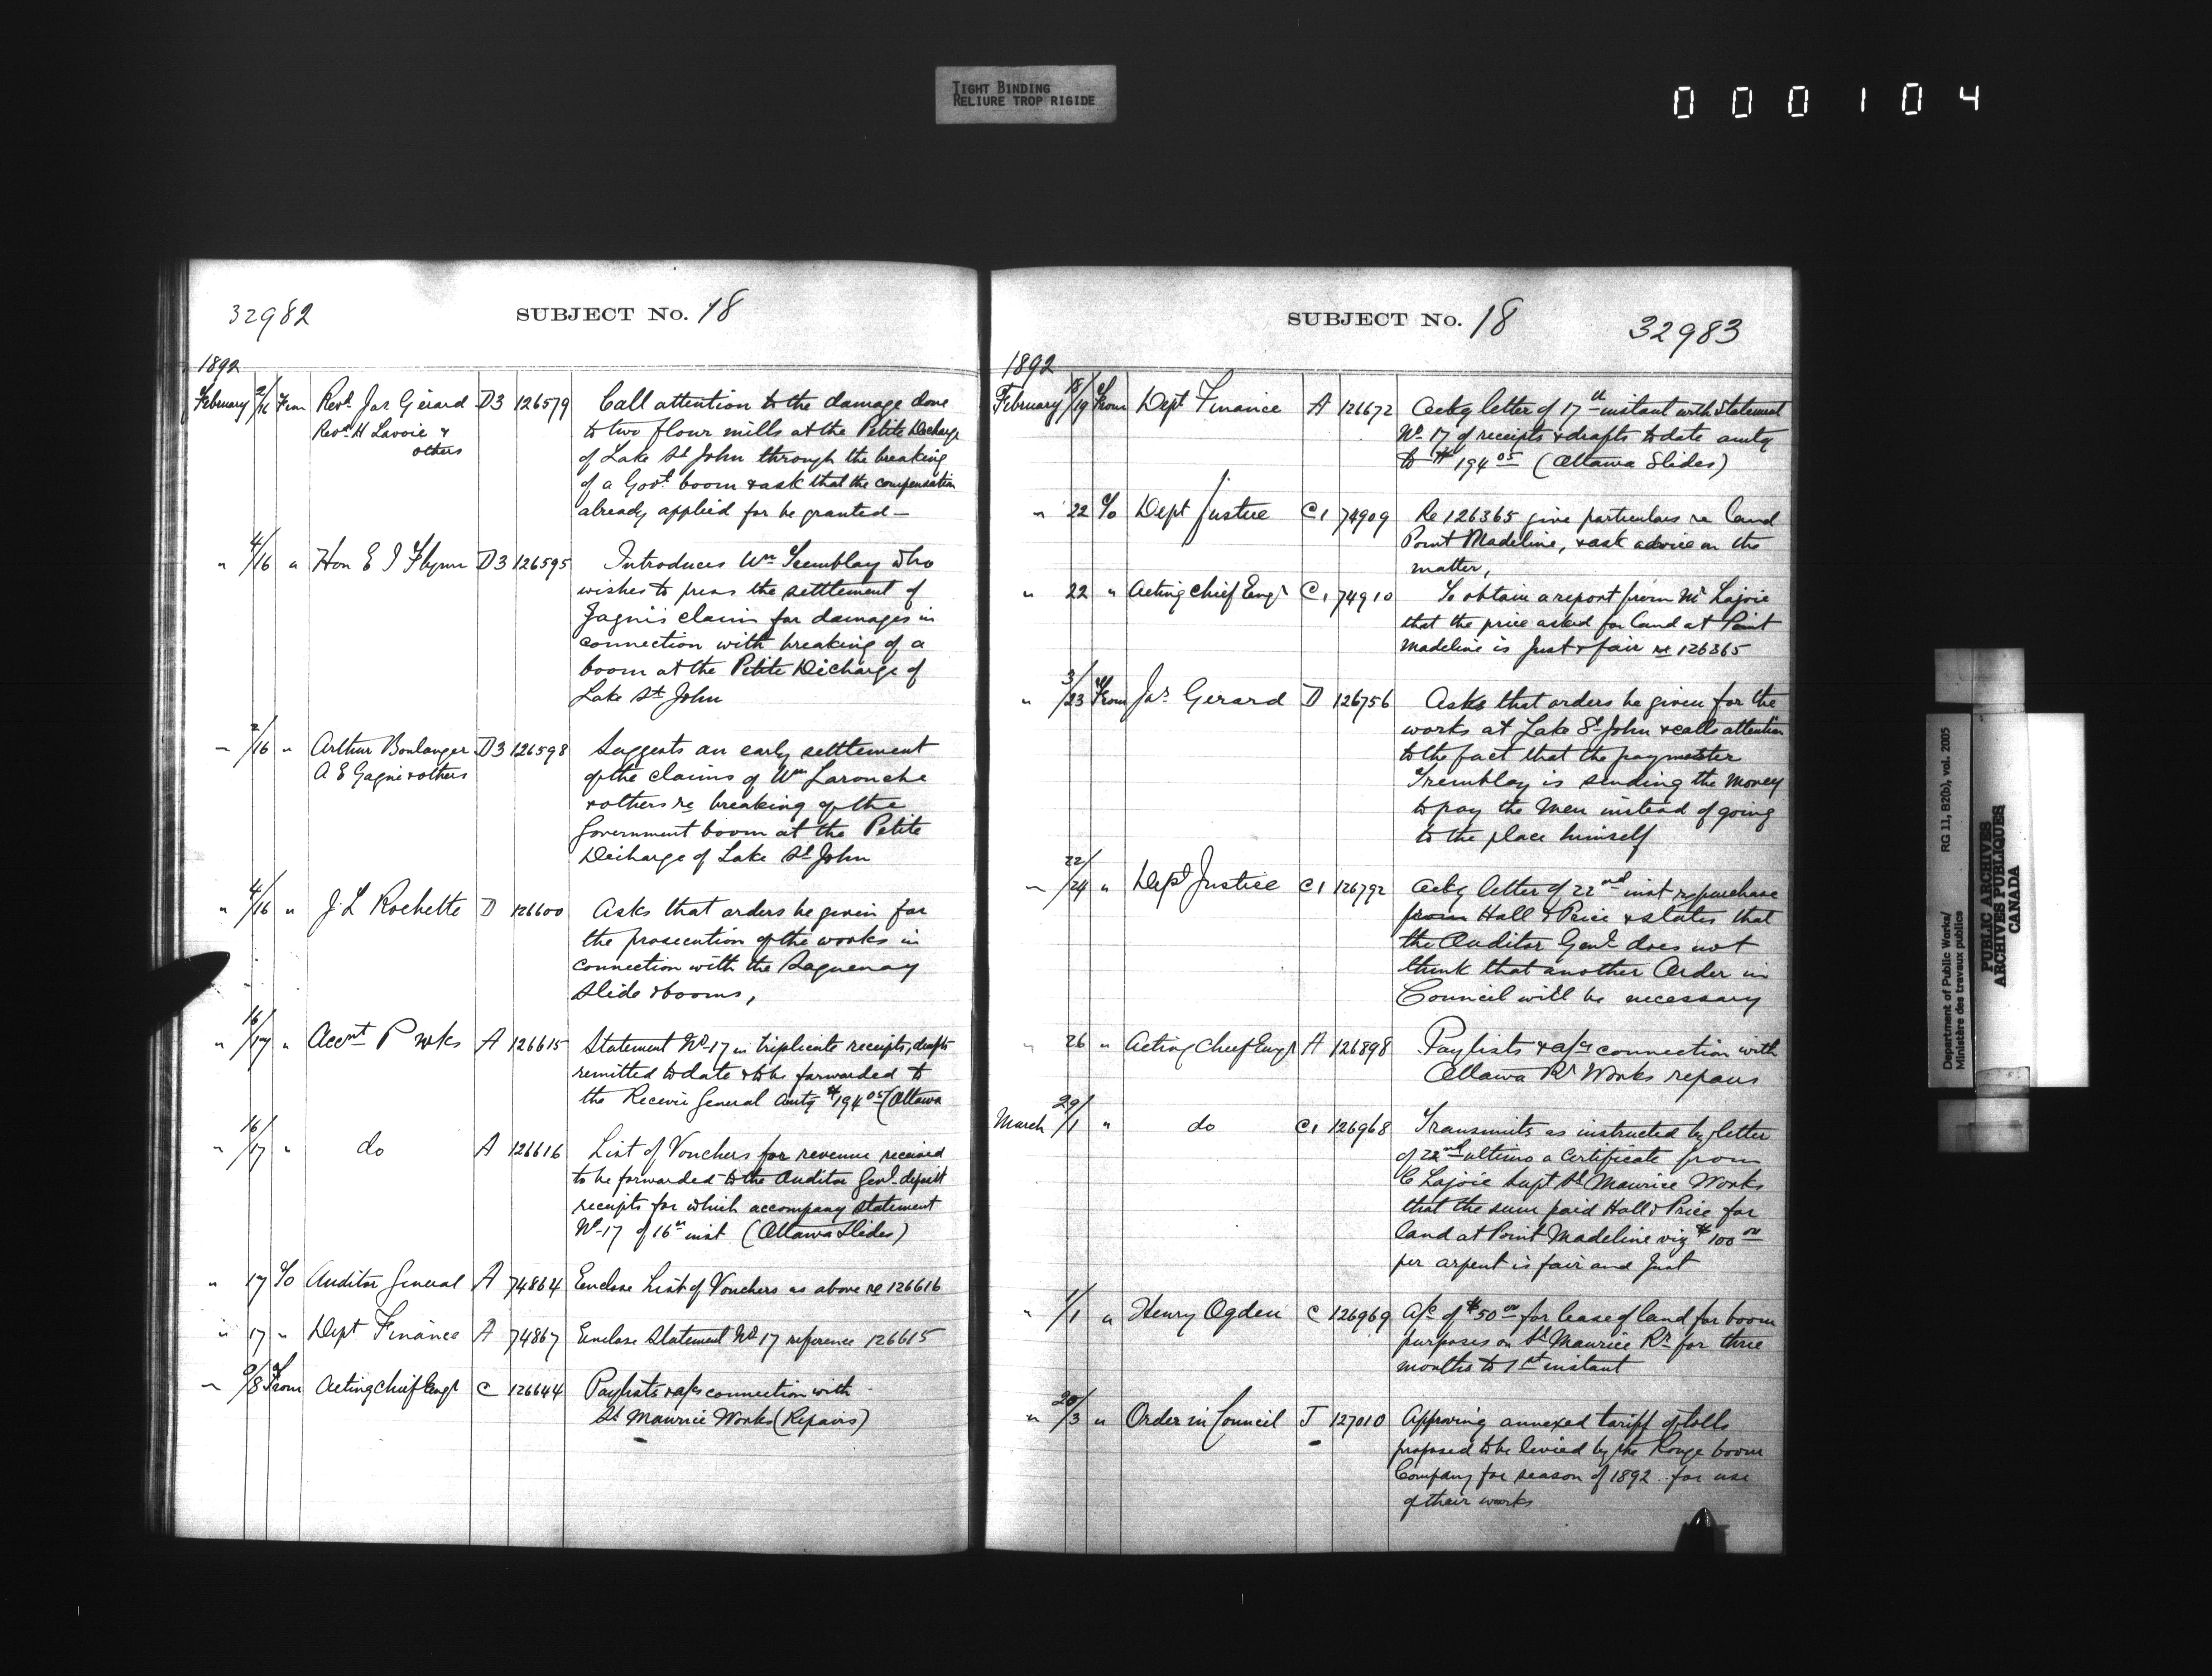 TIGHT BINDING
RELIURE TROP RIGIDE
000104
32982 SUBJECT No. 18
1892
February 2/16 From Revd. Jas Gerard D3 126579 Call attention to the damage done
Revd. H Lavoie & to two flour mills at the Petite Decharge
others of Lake St John through the breaking
of a Govt. boom & ask that the compensation
already applied for be granted—
" 4/16 " Hon E J Flynn D3 126595 Introduces Wm Tremblay who
wishes to press the settlement of
claim for damages in
connection with breaking of a
boom at the Petite Decharge of
Lake St. John
" 2/16 " Arthur Boulanger D3 126598 Suggests an early settlement
A E Gagné & others of the claims of Wm Larouche
& others re breaking of the
Government boom at the Petite
Decharge of Lake St John
" 4/16 " J. L Rochette D 126600 Asks that orders be given for
the prosecution of the works in
connection with the Saguenay
Slide & booms,
" 16/17 " Accnt P Wks A 126615 Statement No 17 in triplicate receipts, drafts
remitted to date & to be forwarded to
the Receiv General amtg $194 05 (Ottawa
" 16/17 " do A 126616 List of Vouchers for revenue received
to be forwarded to the Auditor Genl. deposit
receipts for which accompany statement
No 17 of 16th inst (Ottawa Slides)
" 17 To Auditor General A 74864 Enclose List of Vouchers as above re 126616
" 17 " Dept Finance A 74867 Enclose Statement No 17 reference 126615
" /8 From Acting Chief Engr C 126644 Paylists & a/cs connection with
St Maurice Works (Repairs)
SUBJECT No. 18 32983
1892
February 18/19 From Dept Finance A 126672 Ackg letter of 17th instant with Statement
No 17 of receipts & drafts to date amtg
to $194 05 (Ottawa Slides)
" 22 To Dept Justice C1 74909 Re 126365 give particulars re land
Point Madeline, & ask advice on the
matter,
" 22 " Acting Chief Engr C1 74910 To obtain a report from Mr Lajoie
that the price asked for land at Point
Madeline is just & fair re 126365
" 3/23 From Jas. Gerard D 126756 Asks that orders be given for the
works at Lake St John & calls attention
to the fact that the paymaster
Tremblay is sending the money
to pay the men instead of going
to the place himself
" 22/24 " Dept Justice C1 126792 Ackg letter of 22nd inst re purchase
from Hall & Price & states that
the Auditor Genl. does not
think that another Order in
Council will be necessary
" 26 " Acting Chief Engr A 126898 Paylists & a/cs connection with
Ottawa Rr Works repairs
March 29/1 " do C1 126968 Transmits as instructed by letter
of 22nd ultimo a Certificate from
C Lajoie Supt St Maurice Works
that the sum paid Hall & Price for
land at Point Madeline viz $100 00
per arpent is fair and just
" 1/1 " Henry Ogden C 126969 A/c of $50 00 for lease of land for boom
purposes on St Maurice Rr. for three
months to 1st instant
" 20/3 " Order in Council T 127010 Approving annexed tariff of tolls
proposed to be levied by the Rouge boom
Company for season of 1892 for use
of their works
Department of Public Works/ RG 11, B2(b), vol. 2005
Ministère des travaux publics
PUBLIC ARCHIVES
ARCHIVES PUBLIQUES
CANADA